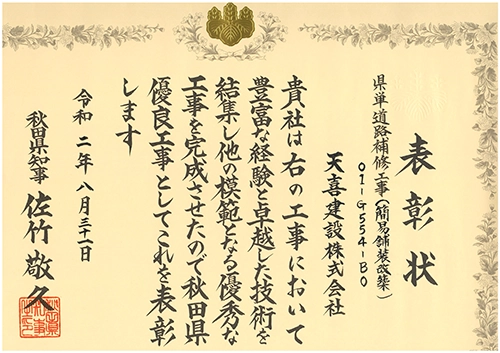 表彰状
県単道路補修工事(簡易舗装改築)
01-G554-B0
天喜建設株式会社
貴社は右の工事において
豊富な経験と卓越した技術を
結集し他の模範となる優秀な
工事を完成させたので秋田県
優良工事としてこれを表彰
します
令和二年八月三十一日
秋田県知事 佐竹敬久